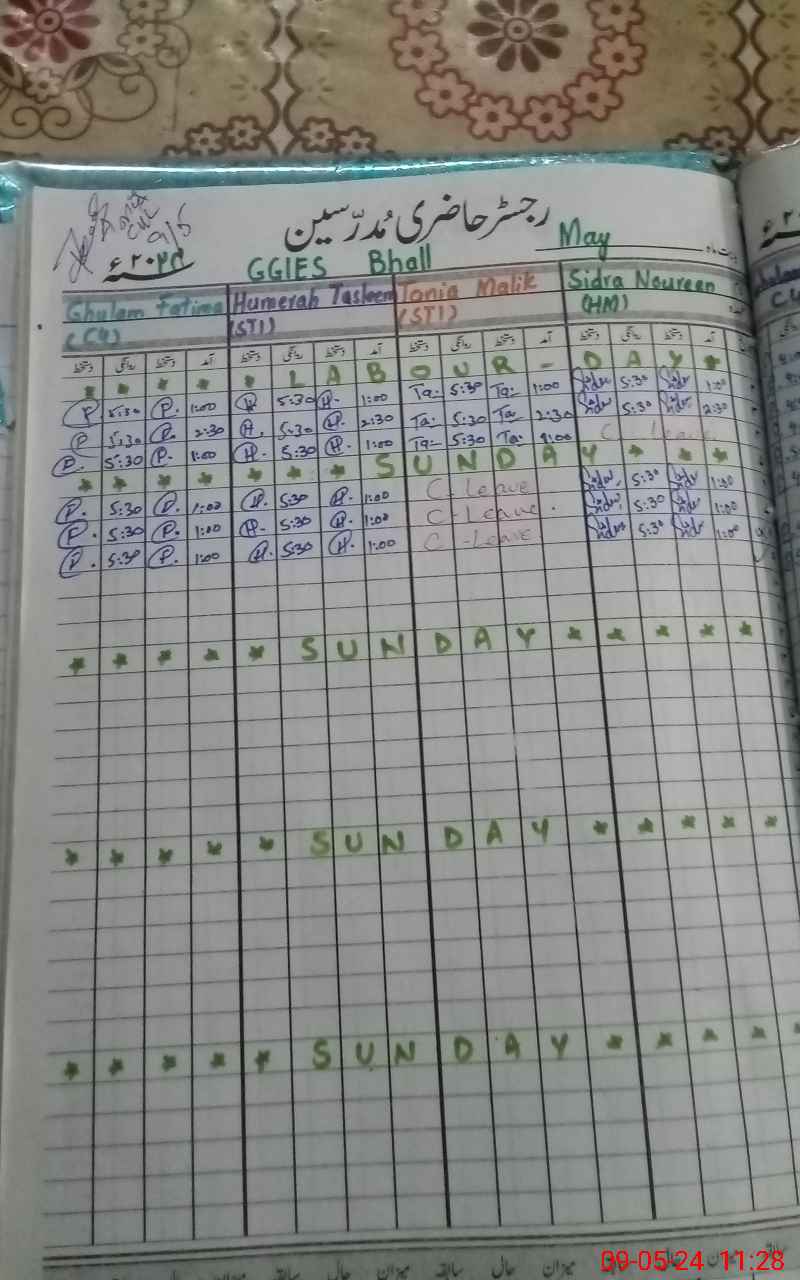 رجسٹر حاضری مُدرّسین
9/5
۲۰۲۴ء GGIES Bhall May بابت ماہ
Ghulam Fatima Humerah Tasleem Tonia Malik Sidra Noureen
(C4) (STI) (STI) (HM)
دستخط روانگی دستخط آمد دستخط روانگی دستخط آمد دستخط روانگی دستخط آمد دستخط روانگی دستخط آمد
* * * * * L A B O U R - D A Y *
P 5:30 P. 1:00 H 5:30 H. 1:00 Ta: 5:30 Ta: 1:00 5:30 1:00
P 5:30 P. 2:30 H. 5:30 H. 2:30 Ta: 5:30 Ta 2:30 5:30 2:30
P. 5:30 P. 1:00 H. 5:30 H. 1:00 Ta: 5:30 Ta: 1:00 C Leave
* * * * * * * S U N D A Y * * *
P. 5:30 P. 1:00 H. 5:30 H. 1:00 C - Leave 5:30 1:30
P. 5:30 P. 1:00 H. 5:30 H. 1:00 C - Leave . 5:30 1:00
P. 5:30 P. 1:00 H. 5:30 H. 1:00 C - Leave 5:30 1:00
* * * * * S U N D A Y * * * * *
* * * * * S U N D A Y * * * * *
* * * * * S U N D A Y * * * * *
میزان حال سابقہ میزان حال سابقہ میزان حال سابقہ میزان حال
09-05-24 11:28